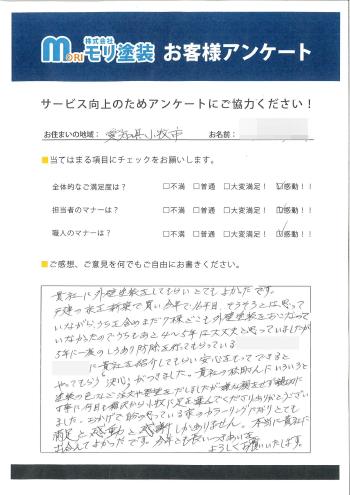 株式会社
MORI モリ塗装 お客様アンケート
サービス向上のためアンケートにご協力ください！
お住まいの地域： 愛知県小牧市 お名前：
■当てはまる項目にチェックをお願いします。
全体的なご満足度は？ □不満 □普通 □大変満足！ ☑感動！！
担当者のマナーは？ □不満 □普通 □大変満足！ ☑感動！！
職人のマナーは？ □不満 □普通 □大変満足！ ☑感動！！
■ご感想、ご意見を何でもご自由にお書きください。
貴社に外壁塗装をしてもらいとてもよかったです。
戸建の家を新築で買い今年で 年目、そろそろとは思って
いながら、うちを含めまだ7棟どこも外壁塗装をおこなって
いなかったのでうちもあと4〜5年は大丈夫と思っていましたが
5年に一度のしろあり防除を行ってもらっている
に貴社を紹介してもらい安心をもってできると
やってもらう決心がつきました。貴社の 取さんにいろいろと
塗装の色など注文や要望をだしましたが嫌な顔をせず親切に
丁寧に何日も 小牧に足を運んでくださりありがとうござい
ました。おかげで 思っている家のカラーリングになりとても
満足と感動と感謝しかありません。本当に貴社に
出会えてよかったです。今後とも長いつきあいを
よろしくお願いいたします。